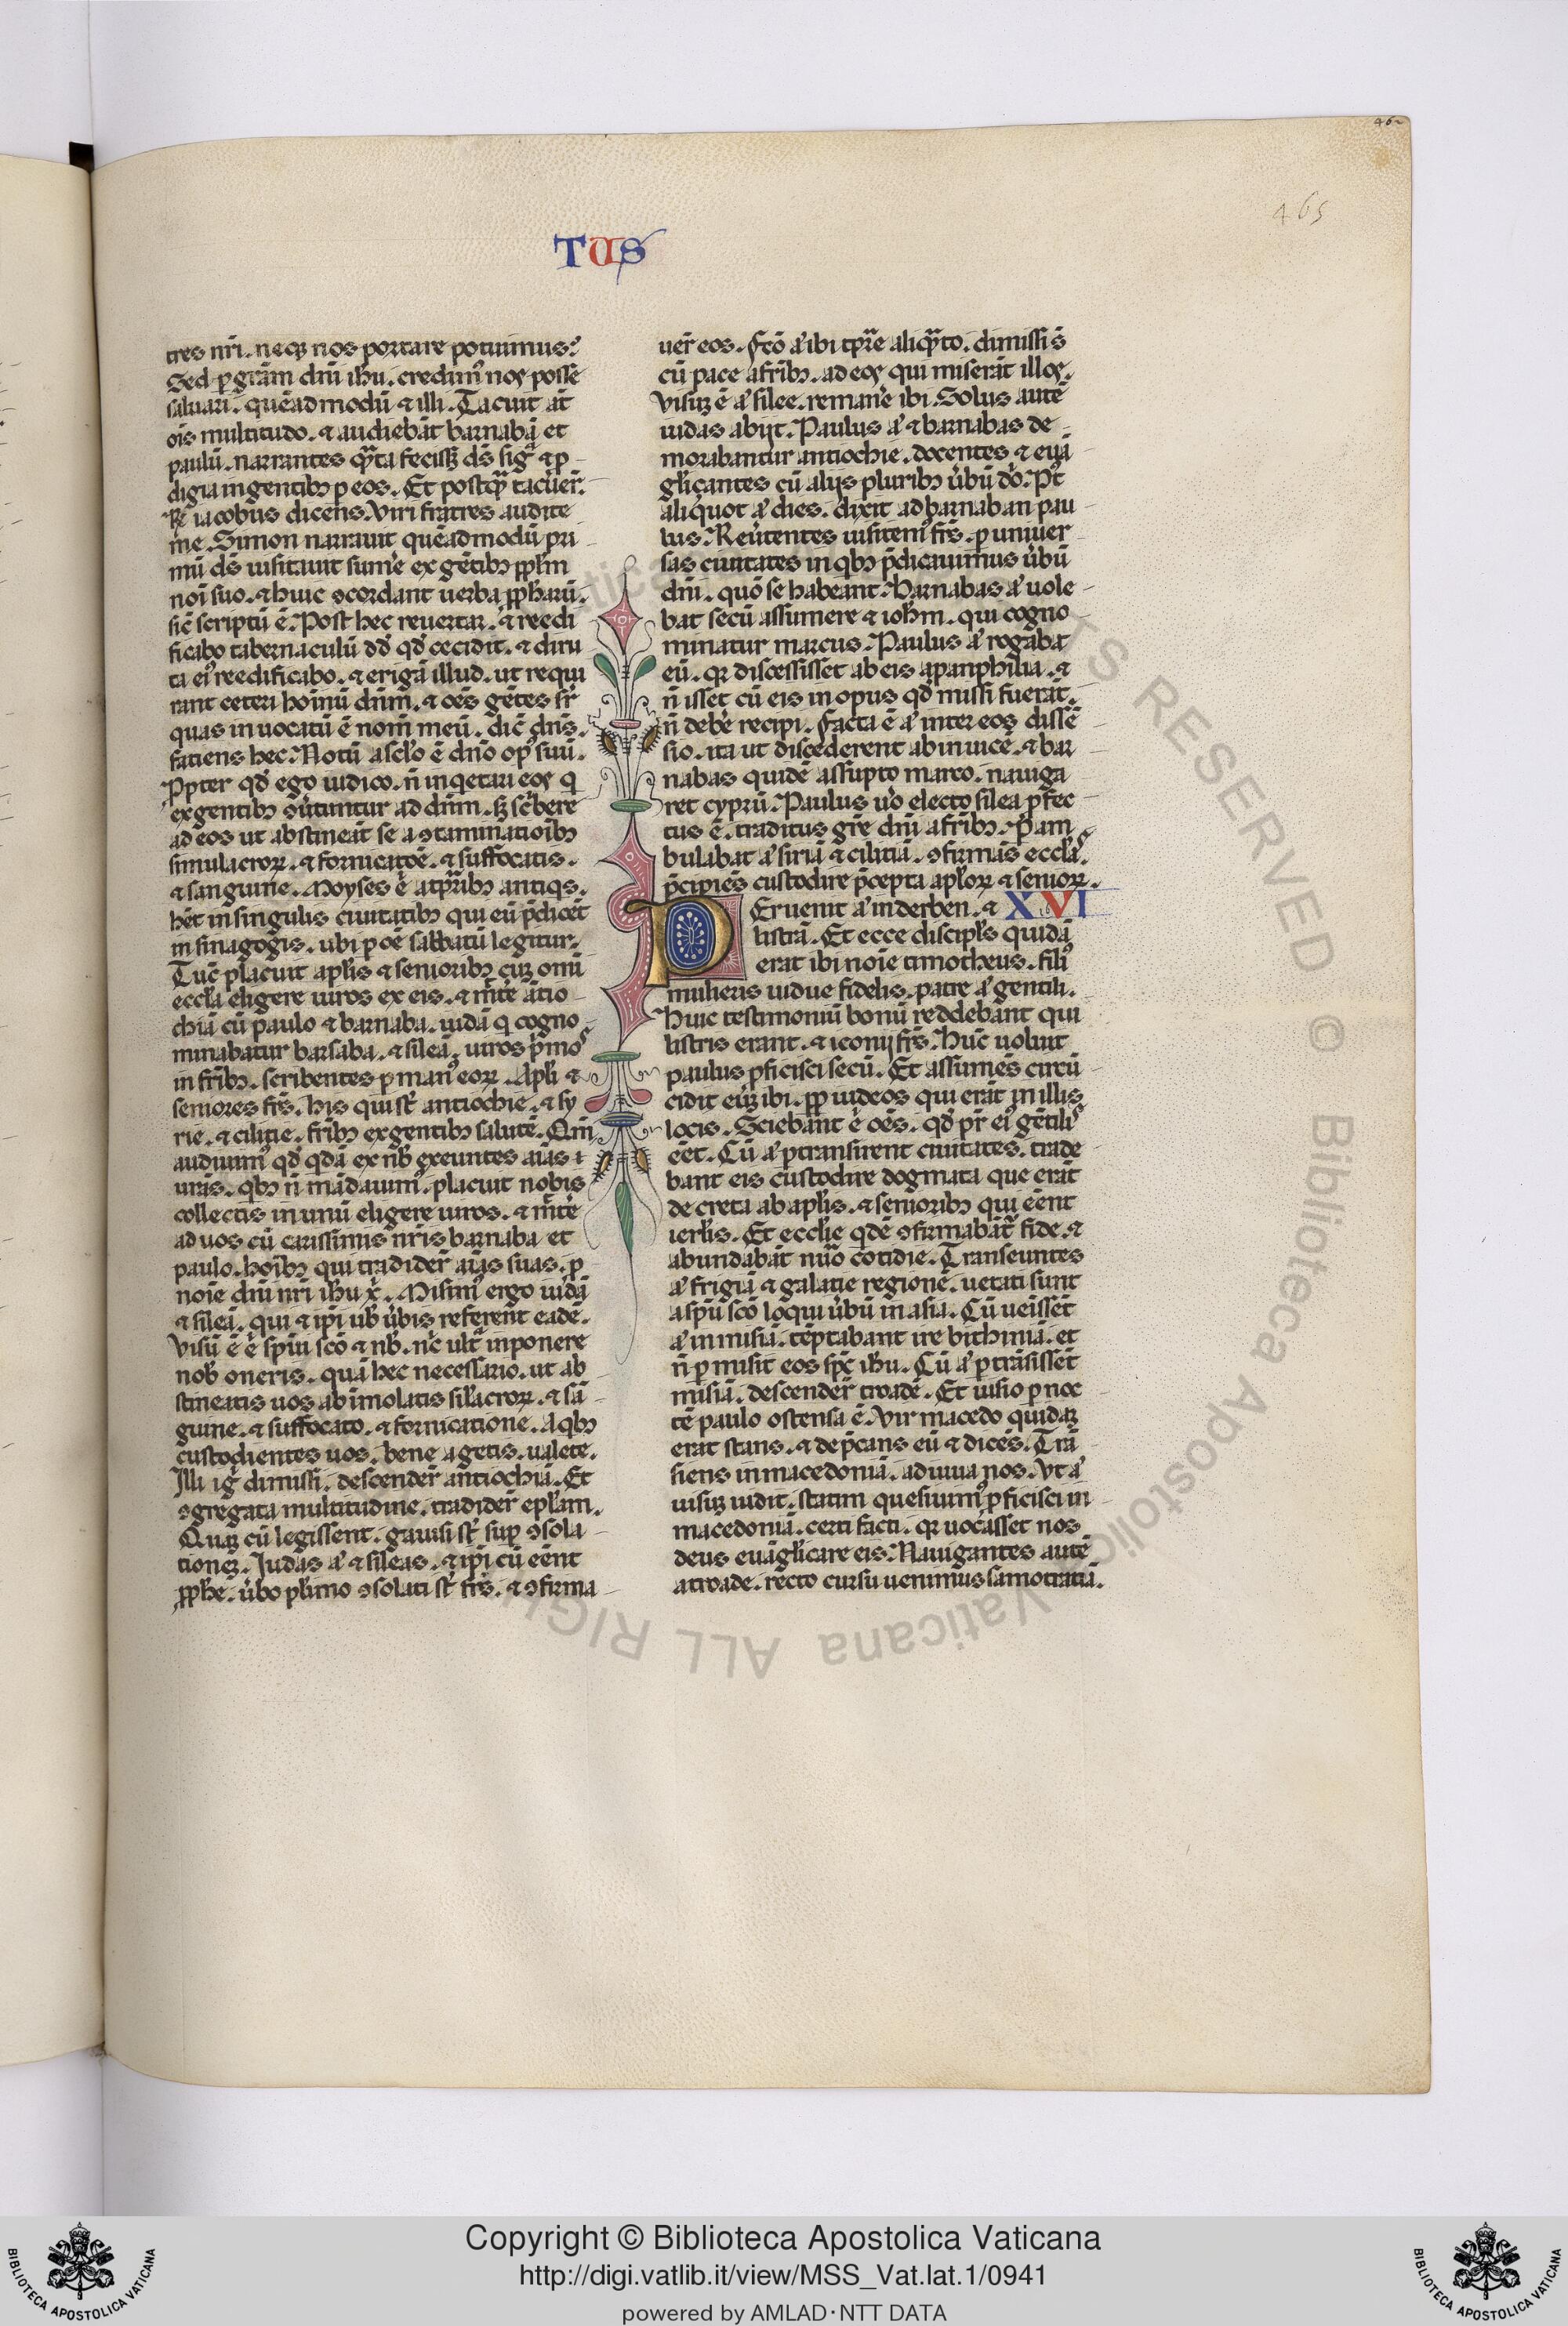 462
465
TUS
tres nr̄i. neqꝫ nos portare potuimus?
Sed ꝑ grām dn̄i ih̄u. credim᷒ nos posse
saluari. quēadmodū ⁊ illi. Tacuit āt
oīs multitudo. ⁊ audiebāt barnabā et
paulū. narrantes qͣta fecissꝫ ds̄ sigͣ ⁊ p
digia in gentibꝫ ꝑ eos. Et postqͣ tacuer̄.
Rē iacobus dicens. Viri fratres audite
me. Simon narrauit quēadmodū pri
mū ds̄ uisitauit sum̄e ex gētibꝫ pp̄lm
noī suo. ⁊ huic ꝯcordant uerba ꝓph̄arū.
sic̄ scriptū ē. Post hec reuertar. ⁊ reedi
ficabo tabernaculū dd̄ qd̄ cecidit. ⁊ diru
ta ei᷒ reedificabo. ⁊ erigā illud. ut requi
rant ceteri hoīnū dn̄m. ⁊ oēs gētes sr̄
quas inuocatū ē nom̄ meū. dic̄ dn̄s.
fatiens hec. Notū a sc̄lo ē dn̄o op᷒ suū.
Ppter qd̄ ego iudico. n̄ inqetari eos q
ex gentibꝫ ꝯu̾tuntur ad dn̄m. sꝫ sc̄bere
ad eos ut abstineāt se a ꝯtaminatiōibꝫ
simulacroꝝ. ⁊ fornicatōē. ⁊ suffocatis.
⁊ sanguine. Moyses ē a tp̄ribꝫ antiqs.
hēt in singulis ciuitatibꝫ qui eū p̄dicēt
in sinagogis. ubi ꝑ oē sabbatū legitur.
Tūc placuit apl̄is ⁊ senioribꝫ cuꝫ omī
eccl̄a eligere uiros ex eis. ⁊ mit̄e ātio
chiā cū paulo ⁊ barnaba. iudā q cogno
minabatur barsaba. ⁊ sileā. uiros p̄mos
in fribꝫ. scribentes ꝑ man᷒ eoꝝ. Apl̄i ⁊
seniores frs̄. his qui st̄ antiochie. ⁊ sy
rie. ⁊ cilitie. fribꝫ ex gentibꝫ salutē. Qm̄
audiuim᷒ qd̄ qdā ex nb̄ exeuntes aīas t
uras. qbꝫ n̄ mādauim᷒. placuit nobis
collectis in unū eligere uiros. ⁊ mit̄e
ad uos cū carissimis nr̄is barnaba et
paulo. hoībꝫ qui tradider̄ aīas suas. ꝑ
noīe dn̄i nr̄i ih̄u x̄. Misim᷒ ergo iudā
⁊ sileā. qui ⁊ ip̄i ub̄ u̾bis referent eadē.
Visū ē ē sp̄ui sc̄o ⁊ nb̄. nc̄ ultͣ inponere
nob̄ oneris. quā hec necessario. ut ab
stineatis uos ab imolatis sil̄acroꝝ. ⁊ sā
guine. ⁊ suffocato. ⁊ fornicatione. A qbꝫ
custodientes uos. bene agetis. ualete.
Illi ig̾ dimissi. descender̄ antiochiā. Et
ꝯgregata multitudine. tradider̄ epl̄am.
Quaꝫ cū legissent. gauisi st̄ suꝑ ꝯsola
tioneꝫ. Judas a̾ ⁊ sileas. ⁊ ip̄i cū eēnt
ꝓph̄e. u̾bo pl̄imo ꝯsolati st̄ frs̄. ⁊ ꝯfirma
uer̄ eos. Fcō a̾ ibi tp̄re aliqͣto. dimissi s̄
cū pace a fribꝫ. ad eos qui miserāt illos.
Visuꝫ ē a̾ silee. remane̾ ibi. Solus autē
iudas abijt. Paulus a̾ ⁊ barnabas de
morabantur antiochie. docentes ⁊ euā
gliçantes cū alijs pluribꝫ u̾bū do̾. Pt̄
aliquot a̾ dies. dixit ad barnaban pau
lus. Reu̾tentes uisitem᷒ frs̄. ꝑ uniuer
sas ciuitates in qbꝫ p̄dicauimus u̾bū
dn̄i. quō se habeant. Barnabas a̾ uole
bat secū assumere ⁊ ioh̄m. qui cogno
minatur marcus. Paulus a̾ rogaba
eū. qr discessisset ab eis a panphilia. ⁊
n̄ isset cū eis in opus qd̄ missi fuerāt.
n̄ debe̾ recipi. Facta ē a̾ inter eos dissē
sio. ita ut discederent ab inuicē. ⁊ bar
nabas quidē assūpto marco. nauiga
ret cyprū. Paulus uo̾ electo silea ꝓfec
tus ē. traditus gr̄e dn̄i a fribꝫ. Pam
bulabat a̾ siriā ⁊ cilitiā. ꝯfirmās eccl̄as.
p̄cipiēs custodire p̄cepta apl̄oꝝ ⁊ senioꝝ.
PEruenit a̾ in derben. ⁊ XVI
listrā. Et ecce discipl̄s quidā
erat ibi noīe timotheus. fili᷒
mulieris uidue fidelis. patre a̾ gentili.
Huic testimoniū bonū reddebant qui
listris erant. ⁊ iconij frs̄. Hūc uoluit
paulus ꝓficisci secū. Et assumēs circū
cidit euꝫ ibi. ꝓp iudeos qui erāt in illis
locis. Sciebant ē oēs. qd̄ pr̄ ei᷒ gētilis
eēt. Cū a̾ ꝑtransirent ciuitates. trade
bant eis custodire dogmata que erāt
decreta ab apl̄is. ⁊ senioribꝫ qui eēnt
ierl̄is. Et eccl̄ie qdē ꝯfirmabāt᷑ fide. ⁊
abundabāt nūo cotidie. Transeuntes
a̾ frigiā ⁊ galatie regionē. uetati sunt
a sp̄u sc̄o loqui u̾bū in asia. Cū ueissēt
a̾ in misiā. tēptabant ire bithiniā. et
n̄ ꝑmisit eos sp̄c ih̄u. Cū a̾ ꝑtrāsissēt
misiā. descender̄ troadē. Et uisio ꝑ noc
tē paulo ostensa ē. Vir macedo quidaꝫ
erat stans. ⁊ dep̄cans eū ⁊ dicēs. Trā
siens in macedoniā. adiuua nos. Vt a̾
uisuꝫ uidit. statim quesiuim᷒ ꝓficisci in
macedoniā. certi facti. qr uocasset nos
deus euāglicare eis. Nauigantes autē
a troade. recto cursu uenimus samotratiā.
Copyright © Biblioteca Apostolica Vaticana
http://digi.vatlib.it/view/MSS_Vat.lat.1/0941
powered by AMLAD·NTT DATA
BIBLIOTECA APOSTOLICA VATICANA
BIBLIOTECA APOSTOLICA VATICANA
© Biblioteca Apostolica Vaticana ALL RIGHTS RESERVED